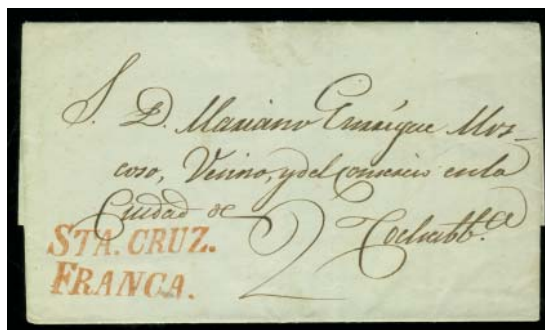 S. D. Mariano Enrrique Mos-
coso, Vecino, y del Comercio en la
Ciudad de
2 Cochabb.ª
STA. CRUZ.
FRANCA.